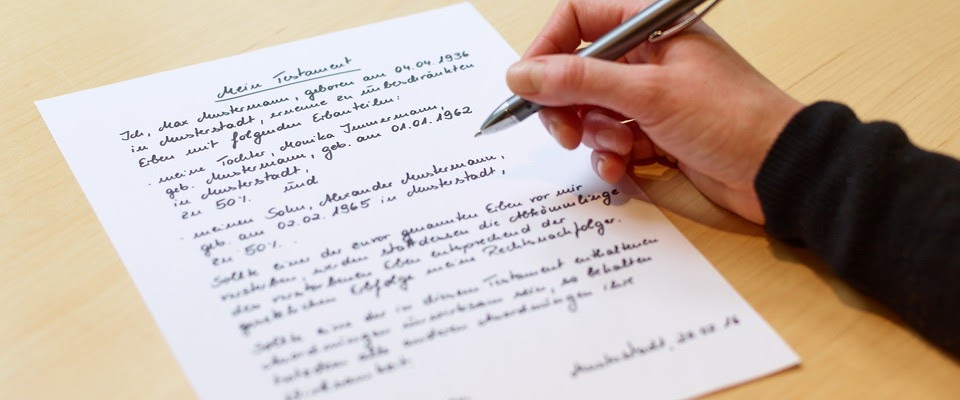 Mein Testament
Ich, Max Mustermann, geboren am 04.04.1936
in Musterstadt, ernenne zu unbeschränkten
Erben mit folgenden Erbanteilen:
· meine Tochter, Monika Immermann,
geb. Mustermann, geb. am 01.01.1962
in Musterstadt,
zu 50% und
· meinen Sohn, Alexander Mustermann,
geb. am 02.02.1965 in Musterstadt,
zu 50%.
Sollte einer der zuvor genannten Erben vor mir
versterben, werden stattdessen die Abkömmlinge
des verstorbenen Erben entsprechend der
gesetzlichen Erbfolge meine Rechtsnachfolger.
Sollte eine der in diesem Testament enthaltenen
Anordnungen unwirksam sein, so behalten
trotzdem alle anderen Anordnungen ihre
Wirksamkeit.
Musterstadt,